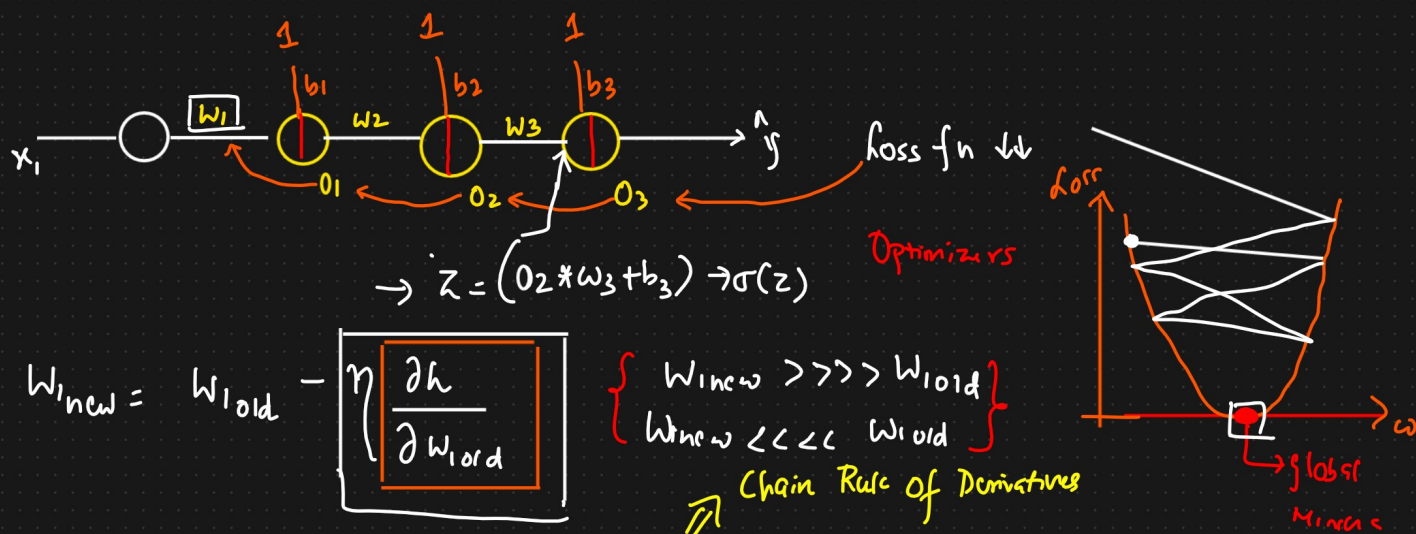 1 1 1
b1 b2 b3
W1 W2 W3
x1 ŷ Loss fn ↓↓
O1 O2 O3
Loss
Optimizers
→ z = (O2*w3+b3) → σ(z)
W1new = W1old - η ∂h/∂w1old
{ W1new >>>> W1old }
{ W1new <<<< W1old }
ω
Chain Rule of Derivatives
→ global